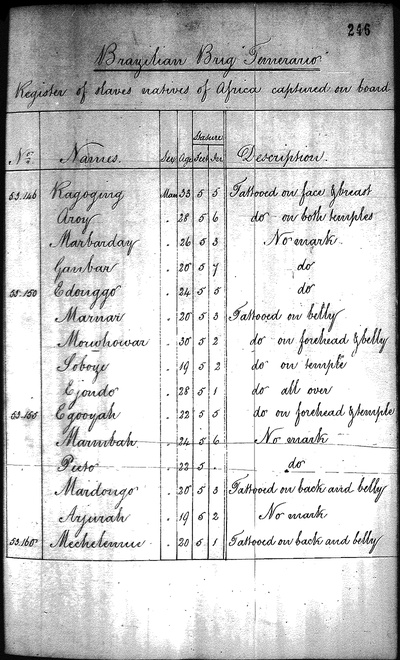 246
Brazilian Brig "Temerario"
Register of slaves natives of Africa captured on board
Stature
No. Names. Sex Age Feet In Description.
53.146 Kagoging Man 33 5 5 Tattooed on face & breast
Aroy . 28 5 6 do on both temples
Marbarday . 26 5 3 No mark
Ganbar . 20 5 7 do
53.150 Edonggo . 24 5 5 do
Marnar . 20 5 3 Tattooed on belly
Mowhowar . 30 5 2 do on forehead & belly
Soboye . 19 5 2 do on temple
Ejondo . 28 5 1 do all over
53.155 Egooyah . 22 5 5 do on forehead & temple
Marmbah . 24 5 6 No mark
Pieto . 22 5 . do
Mardongo . 20 5 3 Tattooed on back and belly
Arjurah . 19 5 2 No mark
53.160 . 20 5 1 Tattooed on back and belly